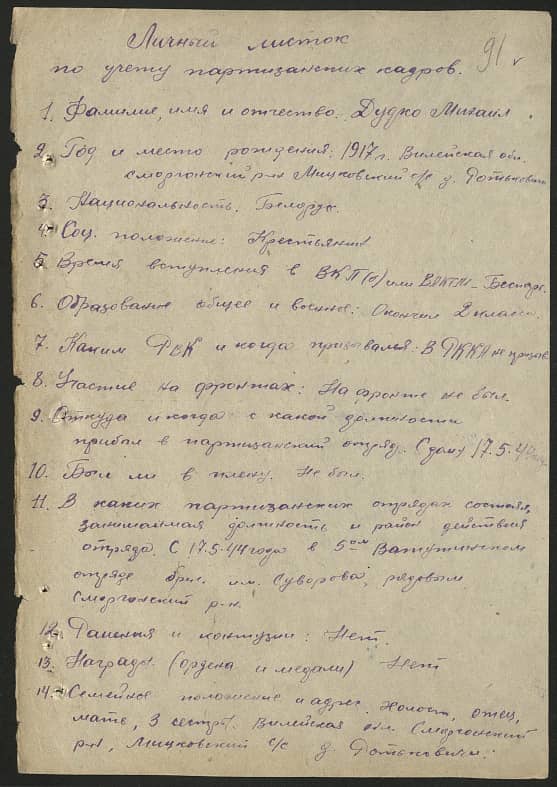 Личный листок
91
по учету партизанских кадров.
1. Фамилие, имя и отчество: Дудко Михаил
2. Год и место рождения: 1917 г. Вилейская обл.
сморгонский р-н Мицковский с/с д. Ротьковичи
3. Национальность. Белорус.
4. Соц. положение: Крестьянин
5 Время вступления в ВКП(б) или ВЛКСМ - Беспарт.
6. Образование общее и военное: Окончил 2 класса.
7. Каким РВК и когда призывался. В РККА не призыв
8. Участие на фронтах: На фронте не был.
9. Откуда и когда с какой должности
прибыл в партизанский отряд. С дому 17.5.44
10. Был ли в плену. Не был.
11. В каких партизанских отрядах состоял,
занимаемая должность и район действия
отряда. С 17.5.44 года в 5ом Ватутинском
отряде бриг. им. Суворова, рядовым
Сморгонский р-н.
12. Ранения и контузии: Нет.
13. Награды (ордена и медали) Нет
14. Семейное положение и адрес. Холост, отец,
мать, 3 сестры. Вилейская обл. Сморгонский
р-н, Мицковский с/с д. Ротьковичи.